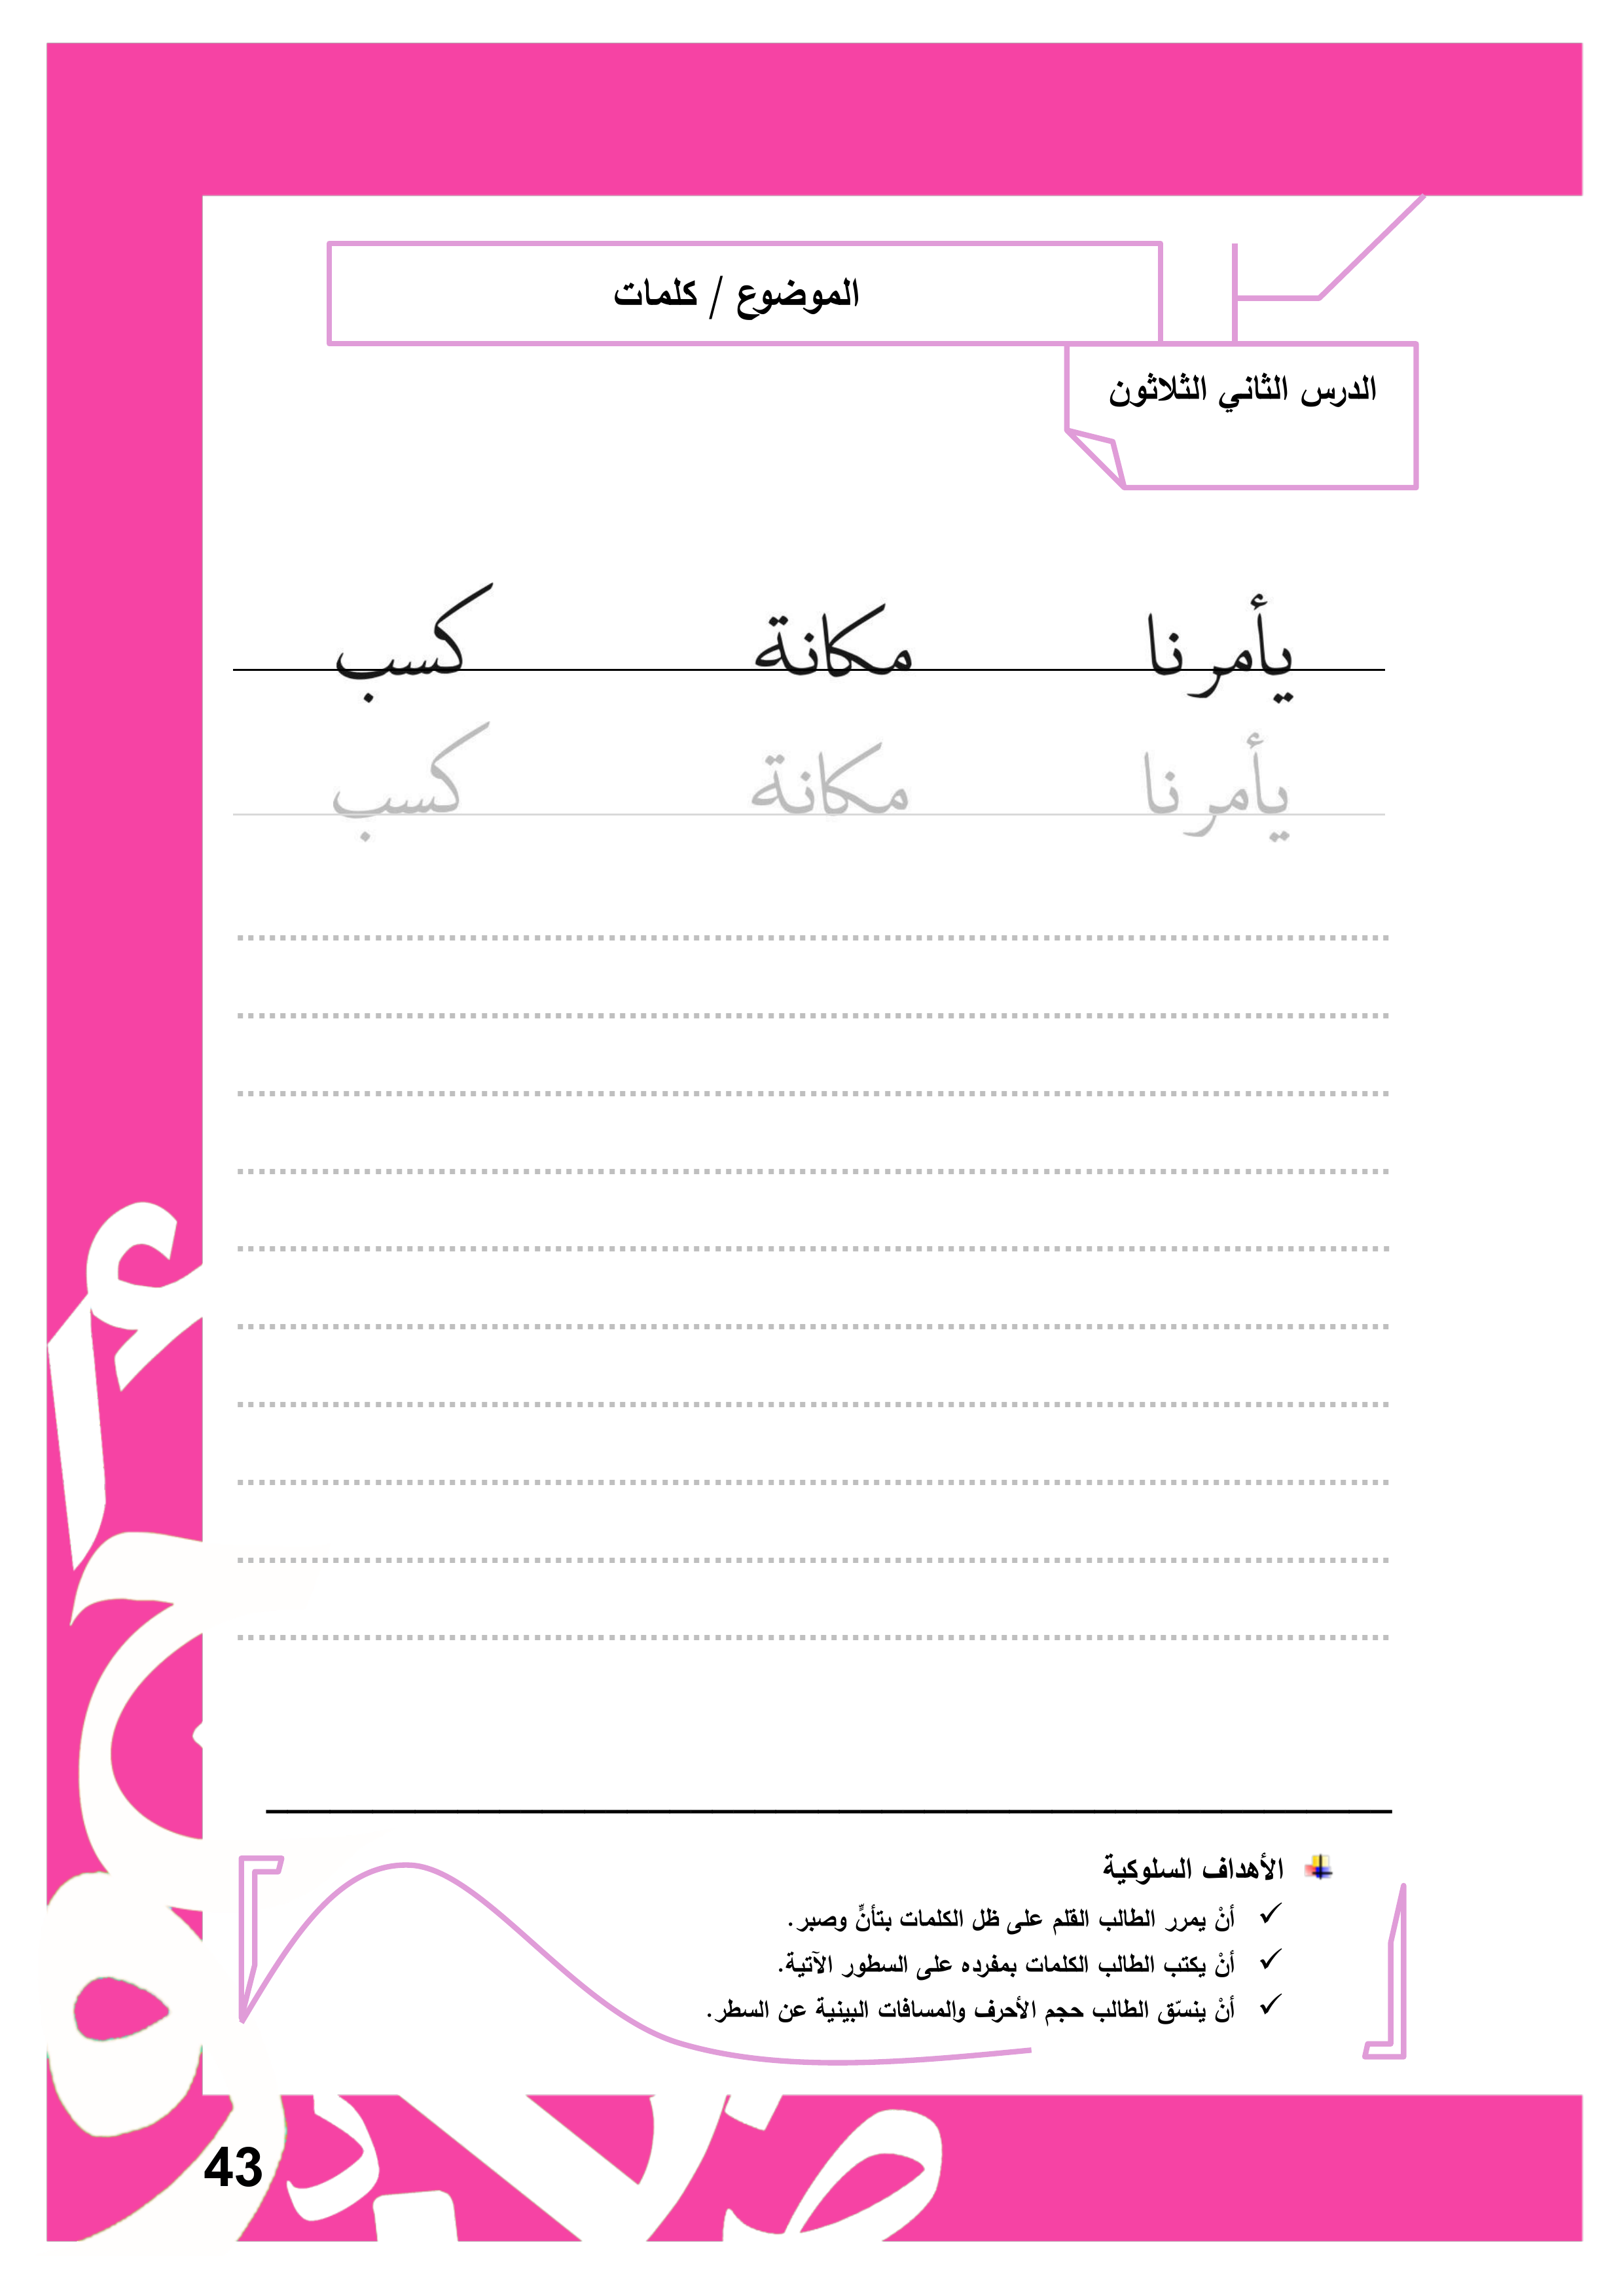 الموضوع / كلمات
الدرس الثاني الثلاثون
يأمرنا مكانة كسب
يأمرنا مكانة كسب
الأهداف السلوكية
أنْ يمرر الطالب القلم على ظل الكلمات بتأنٍّ وصبر.
أنْ يكتب الطالب الكلمات بمفرده على السطور الآتية.
أنْ ينسّق الطالب حجم الأحرف والمسافات البينية عن السطر.
43